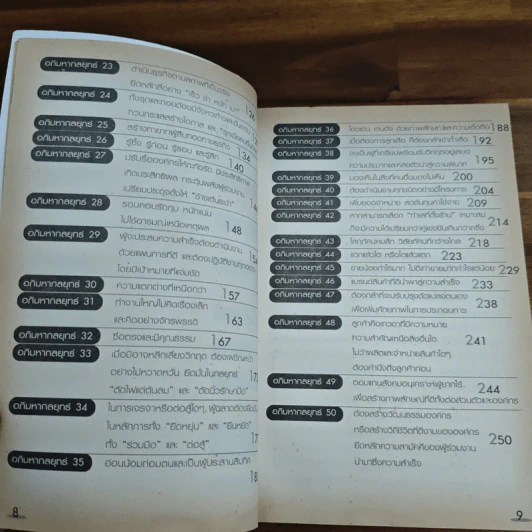 อภิมหากลยุทธ์ 23
ดำเนินธุรกิจตามสภาพที่เป็นจริง
ยึดหลักสี่อย่าง "เร็ว ช้า หนัก เบา" 126
อภิมหากลยุทธ์ 24
ทั้งรุกและถอนต้องมีจังหวะก้าวและขั้นตอน
อภิมหากลยุทธ์ 25
ทวนกระแสสร้างโอกาส และ
อภิมหากลยุทธ์ 26
สร้างทายาทผู้สืบทอดทางธุรกิจ 134
อภิมหากลยุทธ์ 27
รู้ซึ้ง รู้ก่อน รู้รอบ และรู้ลึก 140
ปรับรื้อองค์กรให้กะทัดรัด มีประสิทธิภาพ
เกิดประสิทธิผล กระตุ้นพลังผู้ร่วมงาน
เปรียบประดุจดั่งให้ "ช้างเต้นระบำ"
อภิมหากลยุทธ์ 28
รอบคอบรัดกุม หนักแน่น
ไม่ใช้อารมณ์เหนือเหตุผล 148
อภิมหากลยุทธ์ 29
ผู้จะประสบความสำเร็จต้องดำเนินงาน
ด้วยแผนการที่ดี และต้องปฏิบัติงานทุกอย่าง
โดยมีเป้าหมายที่แจ่มชัด
อภิมหากลยุทธ์ 30
ความแตกต่างที่เหนือกว่า 157
อภิมหากลยุทธ์ 31
ทำงานใหญ่ไม่คิดเรื่องเล็ก
และคิดอย่างจักรพรรดิ 163
อภิมหากลยุทธ์ 32
ซื่อตรงและมีคุณธรรม 167
อภิมหากลยุทธ์ 33
เมื่อมิอาจหลีกเลี่ยงวิกฤต ต้องเผชิญหน้า
อย่างไม่หวาดหวั่น ยึดมั่นในกลยุทธ์
"ตัดไฟแต่ต้นลม" และ "ตัดนิ้วรักษามือ"
อภิมหากลยุทธ์ 34
ในการเจรจาหรือต่อสู้ใดๆ, ผู้ฉลาดต้องยึดมั่น
ในหลักการทั้ง "ยืดหยุ่น" และ "ยืนหยัด"
ทั้ง "ร่วมมือ" และ "ต่อสู้"
อภิมหากลยุทธ์ 35
อ่อนน้อมถ่อมตนและเป็นผู้ประสานสิบทิศ
8
อภิมหากลยุทธ์ 36
โดดเด่น เด่นดัง ด้วยภาพลักษณ์และความเชื่อถือ 188
อภิมหากลยุทธ์ 37
เมื่อต้องการลูกเสือ ก็ต้องกล้าเข้าถ้ำเสือ 192
อภิมหากลยุทธ์ 38
จงเป็นผู้ที่เตรียมพร้อมรับวิกฤตอยู่เสมอ
ความประมาทและหลงตัวนำสู่ความพินาศ 195
อภิมหากลยุทธ์ 39
มองเห็นในสิ่งที่คนอื่นมองไม่เห็น 200
อภิมหากลยุทธ์ 40
ต้องดำเนินงานทุกชนิดอย่างมีโครงการ 204
อภิมหากลยุทธ์ 41
เพิ่มยอดจำหน่าย ลดต้นทุนค่าใช้จ่าย 209
อภิมหากลยุทธ์ 42
หากสามารถเลือก "ทำเลที่ตั้งร้าน" เหมาะสม
ก็จะมีความได้เปรียบกว่าคู่แข่งขันเกินกว่าครึ่ง 214
อภิมหากลยุทธ์ 43
โลกทัศน์คมลึก วิสัยทัศน์ที่กว้างไกล 218
อภิมหากลยุทธ์ 44
แตกแล้วโต หรือโตแล้วแตก 223
อภิมหากลยุทธ์ 45
ขายน้อยกำไรมาก ไม่ดีเท่าขายมากกำไรแต่น้อย 229
อภิมหากลยุทธ์ 46
แบรนด์สินค้าที่ดีนำพาสู่ความสำเร็จ 233
อภิมหากลยุทธ์ 47
ต้องกล้าที่จะปรับปรุงดัดแปลงตนเอง
เพื่อเพิ่มศักยภาพในการประกอบการ 238
อภิมหากลยุทธ์ 48
ลูกค้าคือเทวดาที่มีความหมาย
ความสำคัญเหนือสิ่งอื่นใด 241
ไม่ว่าผลิตและจำหน่ายสินค้าใดๆ
ต้องคำนึงถึงลูกค้าก่อน
อภิมหากลยุทธ์ 49
ตอบแทนสังคมอนุเคราะห์ผู้ยากไร้
เพื่อสร้างภาพลักษณ์ที่ดีทั้งต่อส่วนตัวและองค์กร 244
อภิมหากลยุทธ์ 50
ต้องสร้างวัฒนธรรมองค์กร
หรือสร้างวิถีชีวิตที่ดีงามขององค์กร 250
ยึดหลักความสามัคคีของผู้ร่วมงาน
นำมาซึ่งความสำเร็จ
9